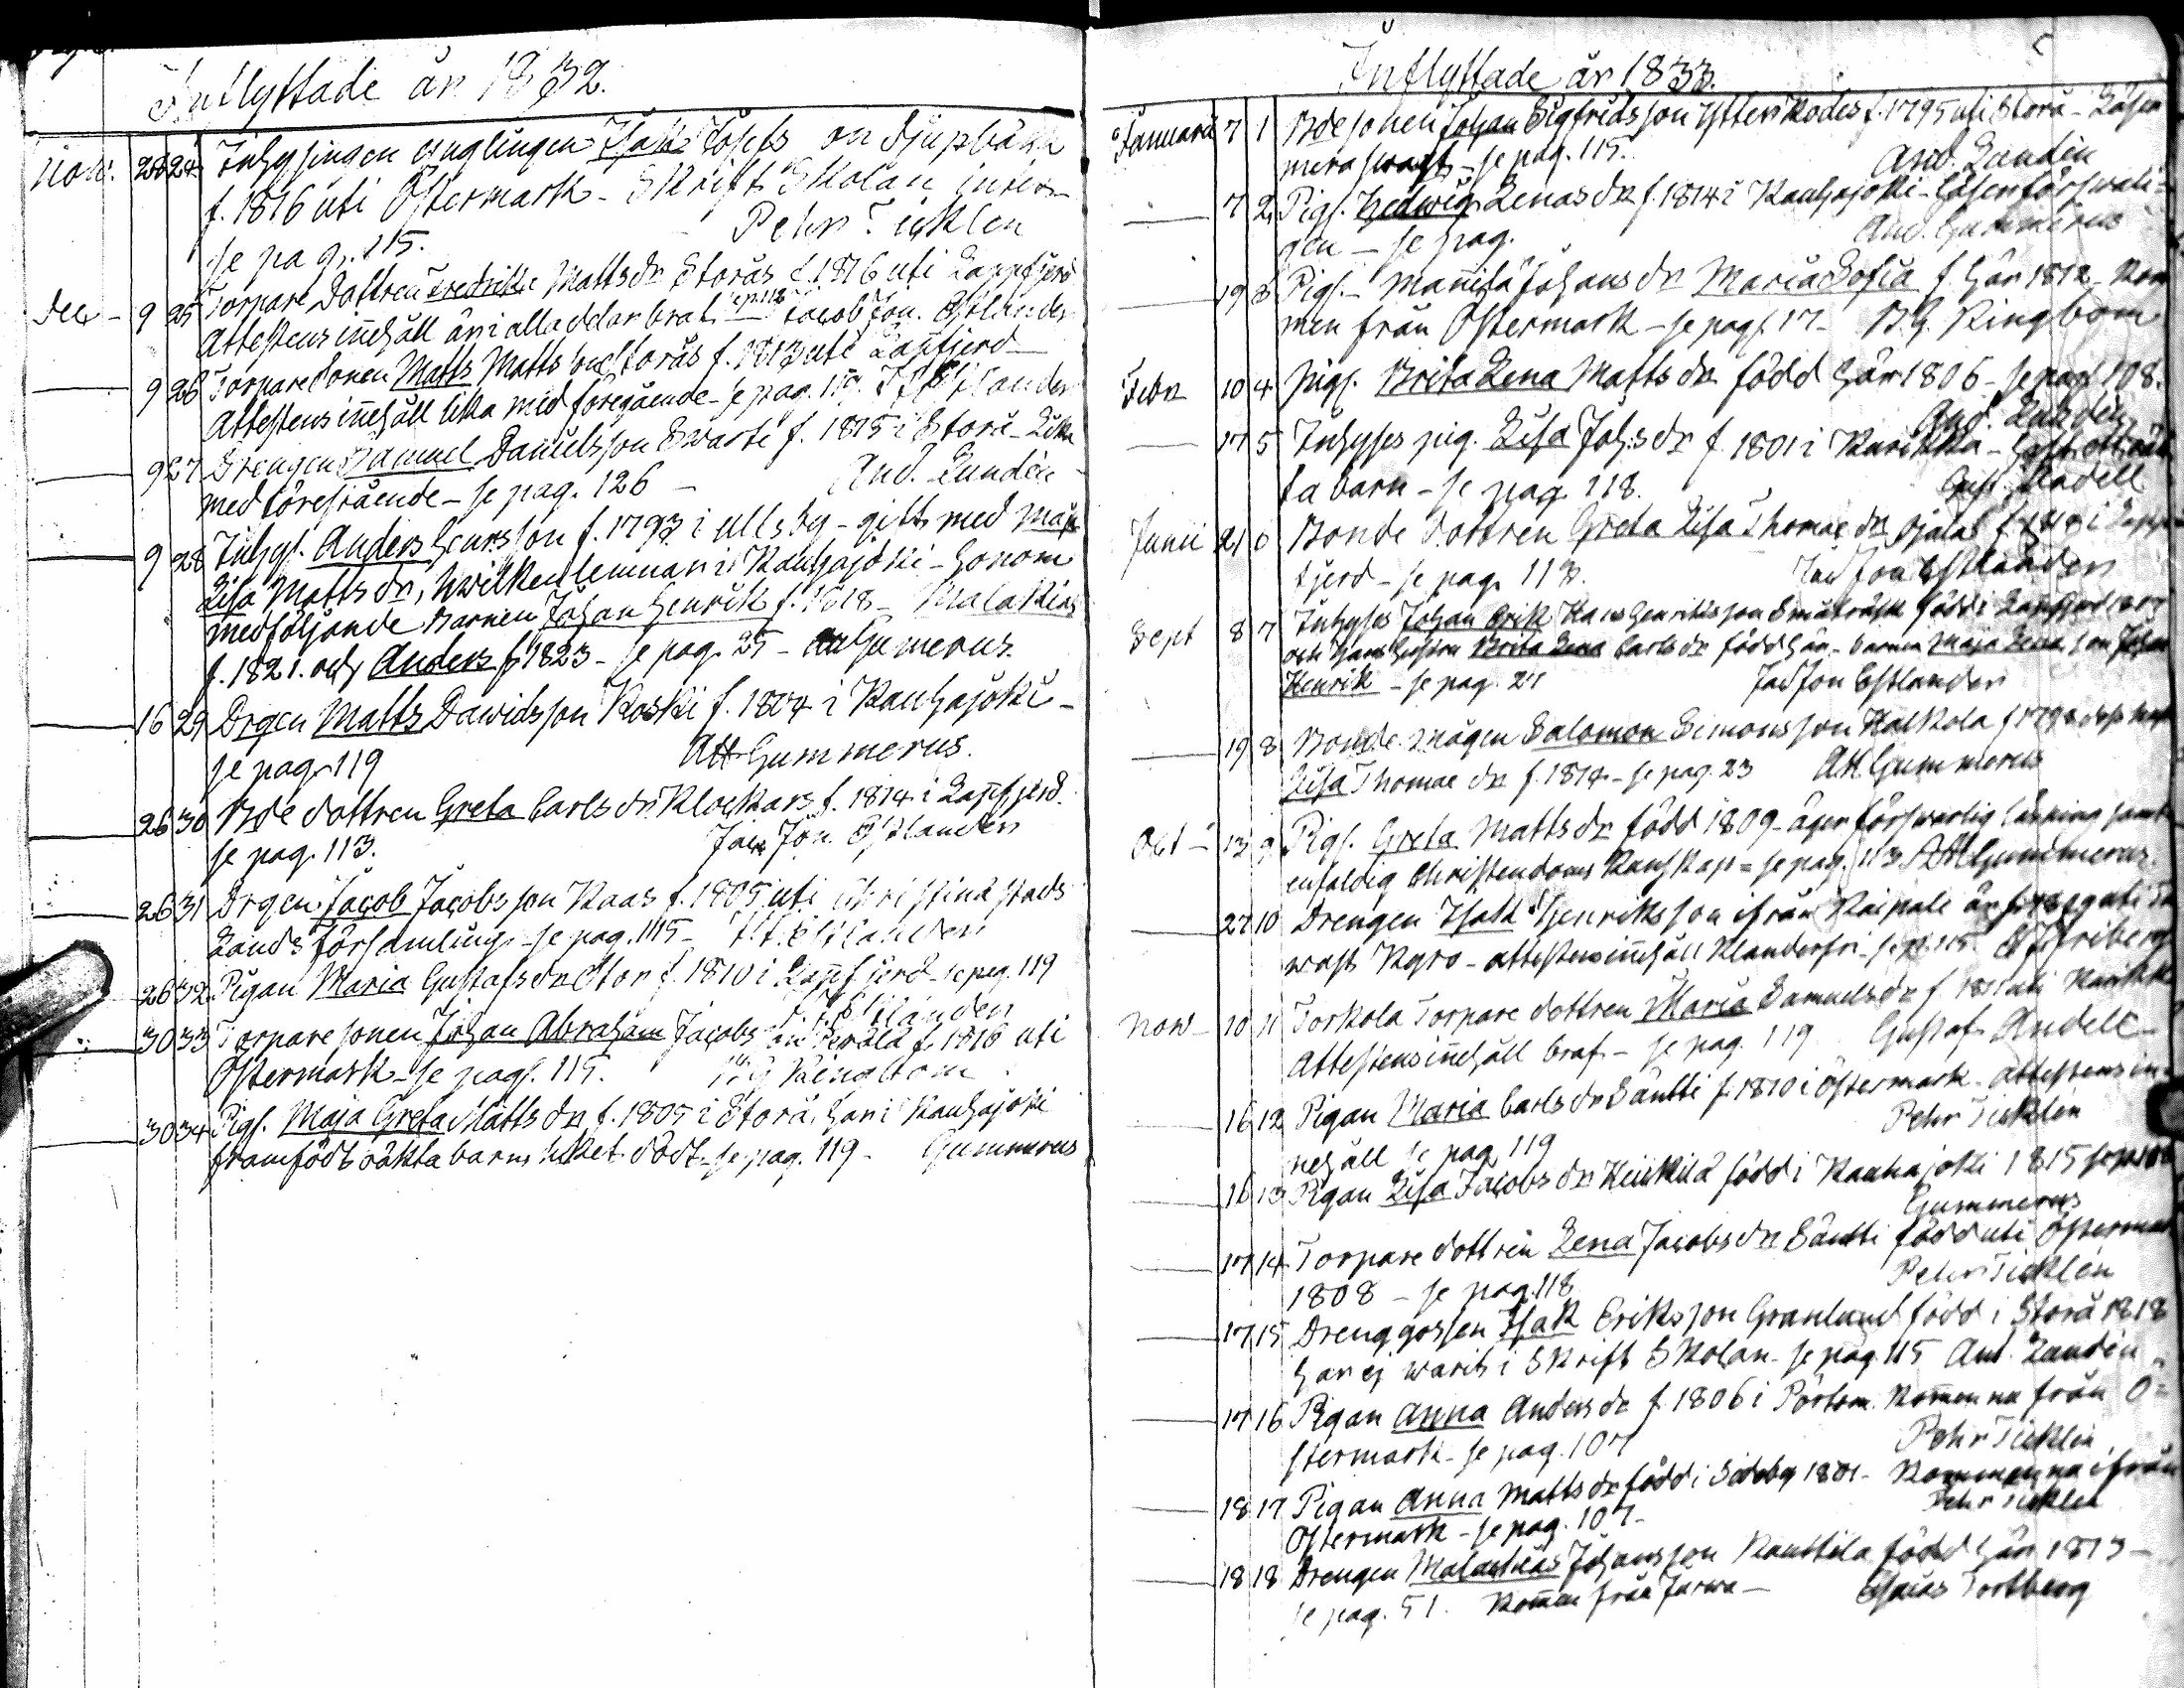 Inflyttade år 1832.
Nov. 28 24 Inhysingen ynglingen Isak Josefs on Djupbäck
f. 1816 uti Östermark - Skrift Skolan
se pag. 115. Pehr Ticklen
Dec - 9 25 Torpare Dottren Fredrika Matts dr Storås f. 1816 uti Lappfjerd
Attestens inehåll är i alla delar braf. se p. 118 Jacob Jon. Estlander
9 26 Torpare sonen Matts Matts son Storås f. 1813 uti Lapfjerd
Attestens inehåll lika med föregående - se pag. 115. J J Estlander
9 27 Drengen Samuel Danielsson Swarte f. 1815 i Storå - Lika
med föregående - se pag. 126 - And. Lundén
9 28 Inhys. Anders Henrsson f. 1793 i Ullsby - gift med Maja
Lisa Matts dr, hwilken lemnar i Kauhajoki - honom
medföljande Barnen Johan Henrik f. 1818 - Malakias
f. 1821. och Anders f 1823 - se pag. 25 - Gummerus.
16 29 Drgen Matts Dawidsson Koski f. 1804 i Kauhajoki -
se pag. 119 AH Gummerus.
26 30 Bde dottren Greta Carls dr Klockars f. 1814 i Lapfjerd.
se pag. 113. Jac. Jon. Estlander
26 31 Drgen Jacob Jacobsson Kaas f. 1805 uti Christina stads
Lands församling - se pag. 115 - J. J. Estlander
26 32 Pigan Maria Gustafs dr Stor f. 1810 i Lapfjerd - se pag. 119
J. J. Estlander
30 33 Torpare sonen Johan Abraham Jacobs son Perälä f. 1816 uti
Östermark - se pag. 115. B G Ringbom
30 34 Pigs. Maja Greta Matts dr f. 1805 i Storå, har i Kauhajoki
framfödt oäkta barn, hvilket dödt - se pag. 119 - Gummerus
Inflyttade år 1833.
Januarii 7 1 Bde sonen Johan Sigfridsson Ytterskodes f. 1795 uti Storå - Läser
mera swagt - se pag. 115. And. Lundén
7 2 Pigs. Hedwig Lenas dr f. 1814 i Kauhajoki - läser förswarli=
gen - se pag. And. Gummerus
19 3 Pigs. - Johans dr Maria Sofia f. här 1812 - kom
men från Östermark - se pag. 17 - B. G. Ringbom
Febr 10 4 Pigs. Brita Lena Matts dr född här 1806 - se pag. 108.
And. Lundén
17 5 Inhyses pig. Lisa Johs dr f. 1801 i Kurikka - haft ett oäk
ta barn - se pag. 118. Gust. Andell
Junii 21 6 Bonde dottren Greta Lisa Thomae dr Ojala f. 1818 i Lapp
fjerd - se pag. 118. Jac Jon Estlander
Sept 8 7 Inhyses Johan Erik Hans Henriksson Småträsk född i Lappfjerd 1807
och hans hustru Brita Lena Carls dr född här - barnen Maja Lena, son Johan
Henrik - se pag. 24 Jac Jon Estlander
19 8 Bonde mågen Salomon Simonsson Kalkola f 1798
Lisa Thomae dr f. 1814 - se pag. 23 AH. Gummerus
Oct - 13 9 Pigs. Greta Matts dr född 1809 - äger förswarlig läsning samt
enfaldig Christendoms kunskap = se pag. 113 AH Gummerus.
27 10 Drengen Isak Henriksson ifrån Raipale uti Ta
wast Kyro - attestens inehåll klanderfri - se p. 115 Friberg
Now - 10 11 Torkola Torpare dottren Maria Samuels dr f. 1811 uti Kurikka
Attestens inehåll braf. - se pag. 119 Gustaf Andell
16 12 Pigan Maria Carls dr Säntti f. 1810 i Östermark - attestens in=
nehåll se pag 119 Pehr Ticklén
16 13 Pigan Lisa Jacobs dr Heikkilä född i Kauhajoki 1815
Gummerus
17 14 Torpare dottren Lena Jacobs dr Säntti född uti Östermark
1808 - se pag. 118 Pehr Ticklén
17 15 Drenggossen Isak Eriksson Granlund född i Storå 1818
har ej warit i Skrift Skolan - se pag. 115 And. Lundén
17 16 Pigan Anna Anders dr f. 1806 i Pörtom. kommen na från Ö=
stermark - se pag. 107 Pehr Ticklén
18 17 Pigan Anna Matts dr född i Sideby 1801 - kommen na ifrån
Östermark - se pag. 107 - Pehr Ticklén
18 18 Drengen Malachias Johansson Kauttila född här 1813 -
se pag. 51. kommen från Jurwa - Esaias Tortberg